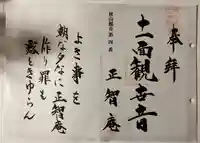 奉拝
十一面観世音
正智庵
よき事を
朝な夕なに正智庵
作り罪も
露ときゆらん